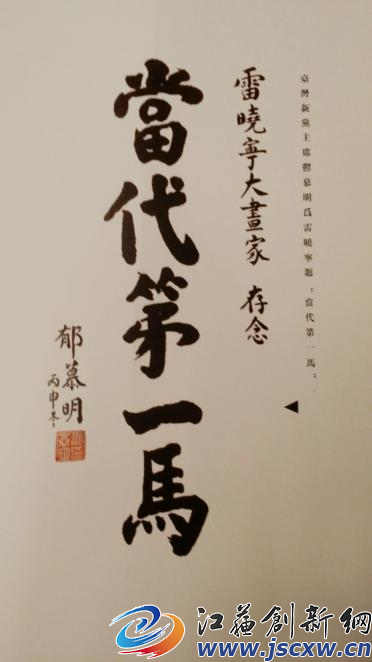 臺灣新黨主席鬱慕明爲雷曉寧題：當代第一馬：
雷曉寧大畫家 存念
當代第一馬
郁慕明
丙申冬
江蘇創新網
www.jscxw.cn